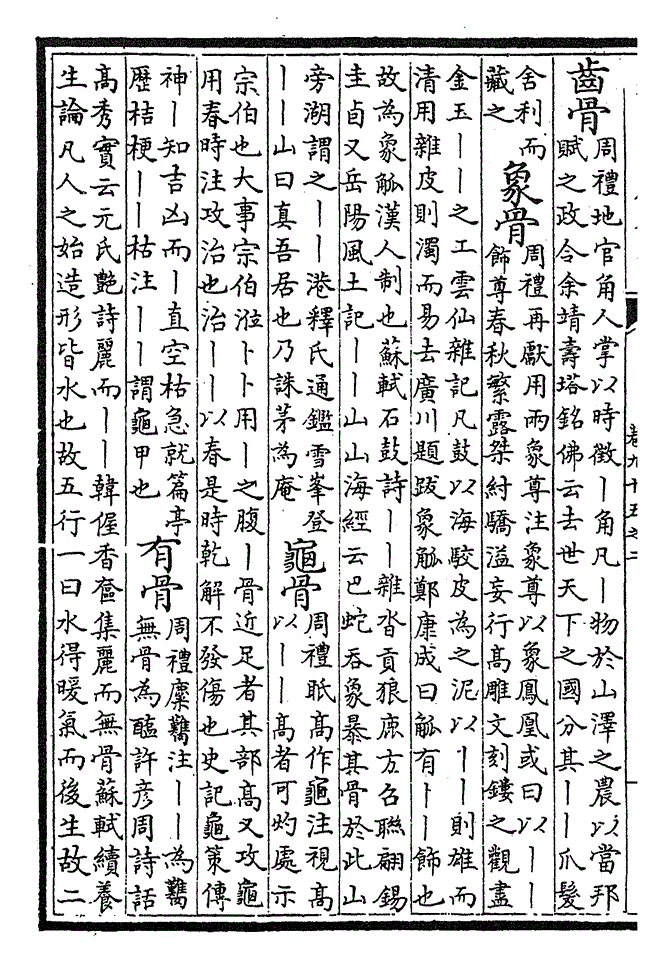 卷九十五之二
齒骨
周禮地官角人掌以時徵丨角凡丨物於山澤之農以當邦
賦之政令余靖壽塔銘佛云去世天下之國分其丨丨爪髮
舍利而
藏之
象骨
周禮再獻用兩象尊注象尊以象鳳凰或曰以丨丨
飾尊春秋繁露桀紂驕溢妄行高雕文刻鏤之觀盡
金玉丨丨之工雲仙雜記凡鼓以海鮫皮為之泥以丨丨則雄而
清用雜皮則濁而易去廣川題跋象觚鄭康成曰觚有丨丨飾也
故為象觚漢人制也蘇軾石鼓詩丨丨雜沓貢狼鹿方召聯翩錫
圭卣又岳陽風土記丨丨山山海經云巴蛇吞象暴其骨於此山
旁湖謂之丨丨港釋氏通鑑雪峯登
丨丨山曰真吾居也乃誅茅為庵
龜骨
周禮眡高作龜注視高
以丨丨高者可灼處示
宗伯也大事宗伯涖卜卜用丨之腹丨骨近足者其部高又攻龜
用春時注攻治也治丨丨以春是時乾解不發傷也史記龜策傳
神丨知吉凶而丨直空枯急就篇亭
歷桔梗丨丨枯注丨丨謂龜甲也
有骨
周禮麋臡注丨丨為臡
無骨為醢許彥周詩話
高秀實云元氏艷詩麗而丨丨韓偓香奩集麗而無骨蘇軾續養
生論凡人之始造形皆水也故五行一曰水得暖氣而後生故二